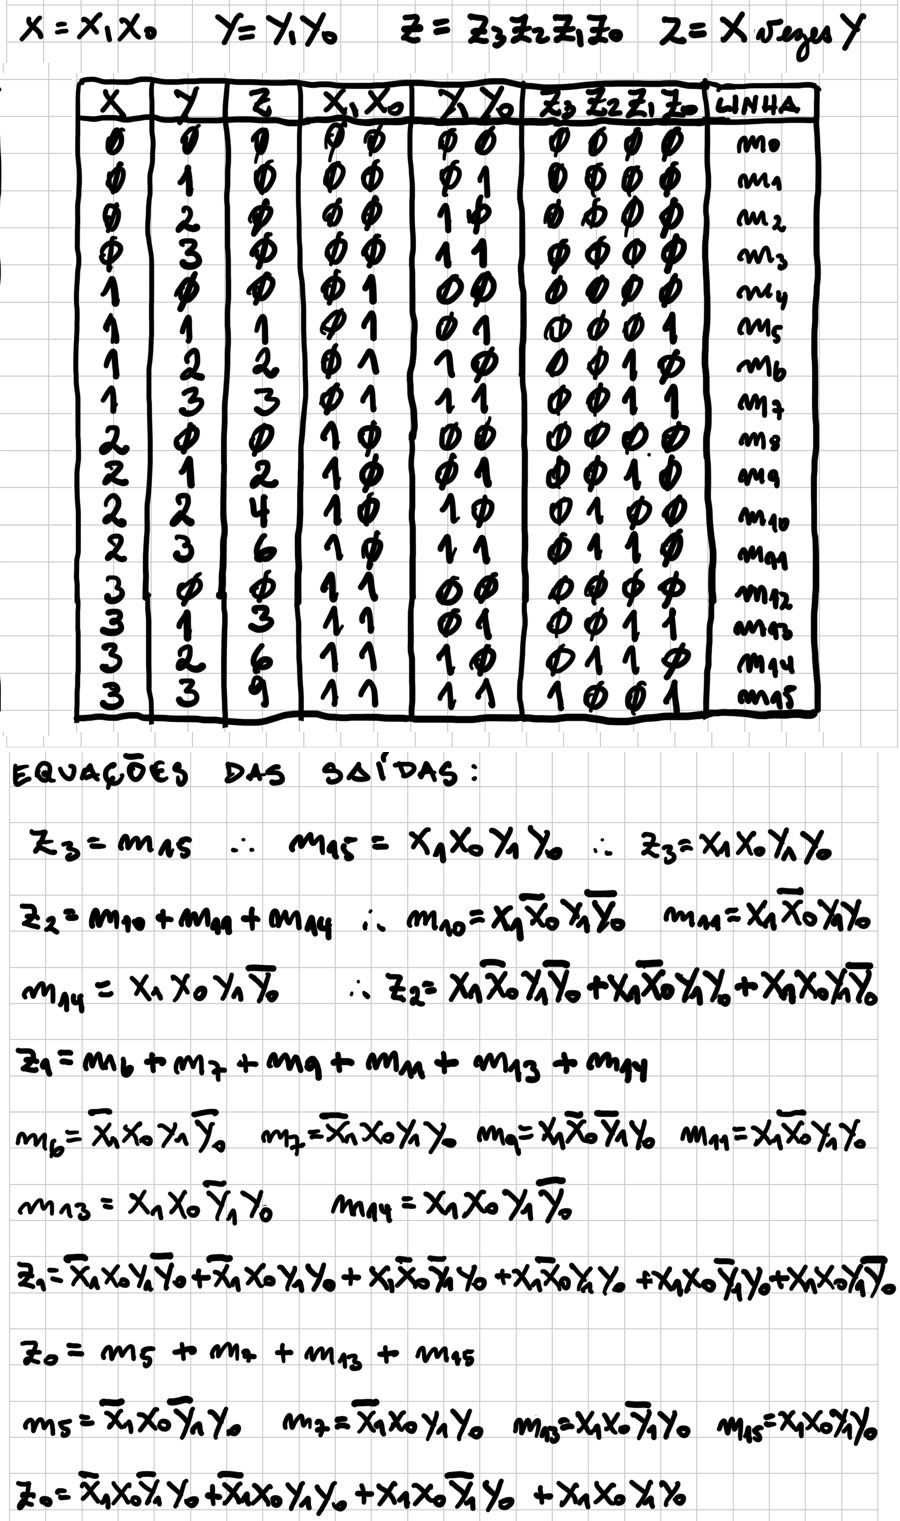 X = X₁X₀ Y = Y₁Y₀ Z = Z₃Z₂Z₁Z₀ Z = X vezes Y
X Y Z X₁X₀ Y₁Y₀ Z₃Z₂Z₁Z₀ LINHA
0 0 0 0 0 0 0 0 0 0 0 m₀
0 1 0 0 0 0 1 0 0 0 0 m₁
0 2 0 0 0 1 0 0 0 0 0 m₂
0 3 0 0 0 1 1 0 0 0 0 m₃
1 0 0 0 1 0 0 0 0 0 0 m₄
1 1 1 0 1 0 1 0 0 0 1 m₅
1 2 2 0 1 1 0 0 0 1 0 m₆
1 3 3 0 1 1 1 0 0 1 1 m₇
2 0 0 1 0 0 0 0 0 0 0 m₈
2 1 2 1 0 0 1 0 0 1 0 m₉
2 2 4 1 0 1 0 0 1 0 0 m₁₀
2 3 6 1 0 1 1 0 1 1 0 m₁₁
3 0 0 1 1 0 0 0 0 0 0 m₁₂
3 1 3 1 1 0 1 0 0 1 1 m₁₃
3 2 6 1 1 1 0 0 1 1 0 m₁₄
3 3 9 1 1 1 1 1 0 0 1 m₁₅
EQUAÇÕES DAS SAÍDAS:
Z₃ = m₁₅ ∴ m₁₅ = X₁X₀Y₁Y₀ ∴ Z₃ = X₁X₀Y₁Y₀
Z₂ = m₁₀ + m₁₁ + m₁₄ ∴ m₁₀ = X₁X̅₀Y₁Y̅₀ m₁₁ = X₁X̅₀Y₁Y₀
m₁₄ = X₁X₀Y₁Y̅₀ ∴ Z₂ = X₁X̅₀Y₁Y̅₀ + X₁X̅₀Y₁Y₀ + X₁X₀Y₁Y̅₀
Z₁ = m₆ + m₇ + m₉ + m₁₁ + m₁₃ + m₁₄
m₆ = X̅₁X₀Y₁Y̅₀ m₇ = X̅₁X₀Y₁Y₀ m₉ = X₁X̅₀Y̅₁Y₀ m₁₁ = X₁X̅₀Y₁Y₀
m₁₃ = X₁X₀Y̅₁Y₀ m₁₄ = X₁X₀Y₁Y̅₀
Z₁ = X̅₁X₀Y₁Y̅₀ + X̅₁X₀Y₁Y₀ + X₁X̅₀Y̅₁Y₀ + X₁X̅₀Y₁Y₀ + X₁X₀Y̅₁Y₀ + X₁X₀Y₁Y̅₀
Z₀ = m₅ + m₇ + m₁₃ + m₁₅
m₅ = X̅₁X₀Y̅₁Y₀ m₇ = X̅₁X₀Y₁Y₀ m₁₃ = X₁X₀Y̅₁Y₀ m₁₅ = X₁X₀Y₁Y₀
Z₀ = X̅₁X₀Y̅₁Y₀ + X̅₁X₀Y₁Y₀ + X₁X₀Y̅₁Y₀ + X₁X₀Y₁Y₀